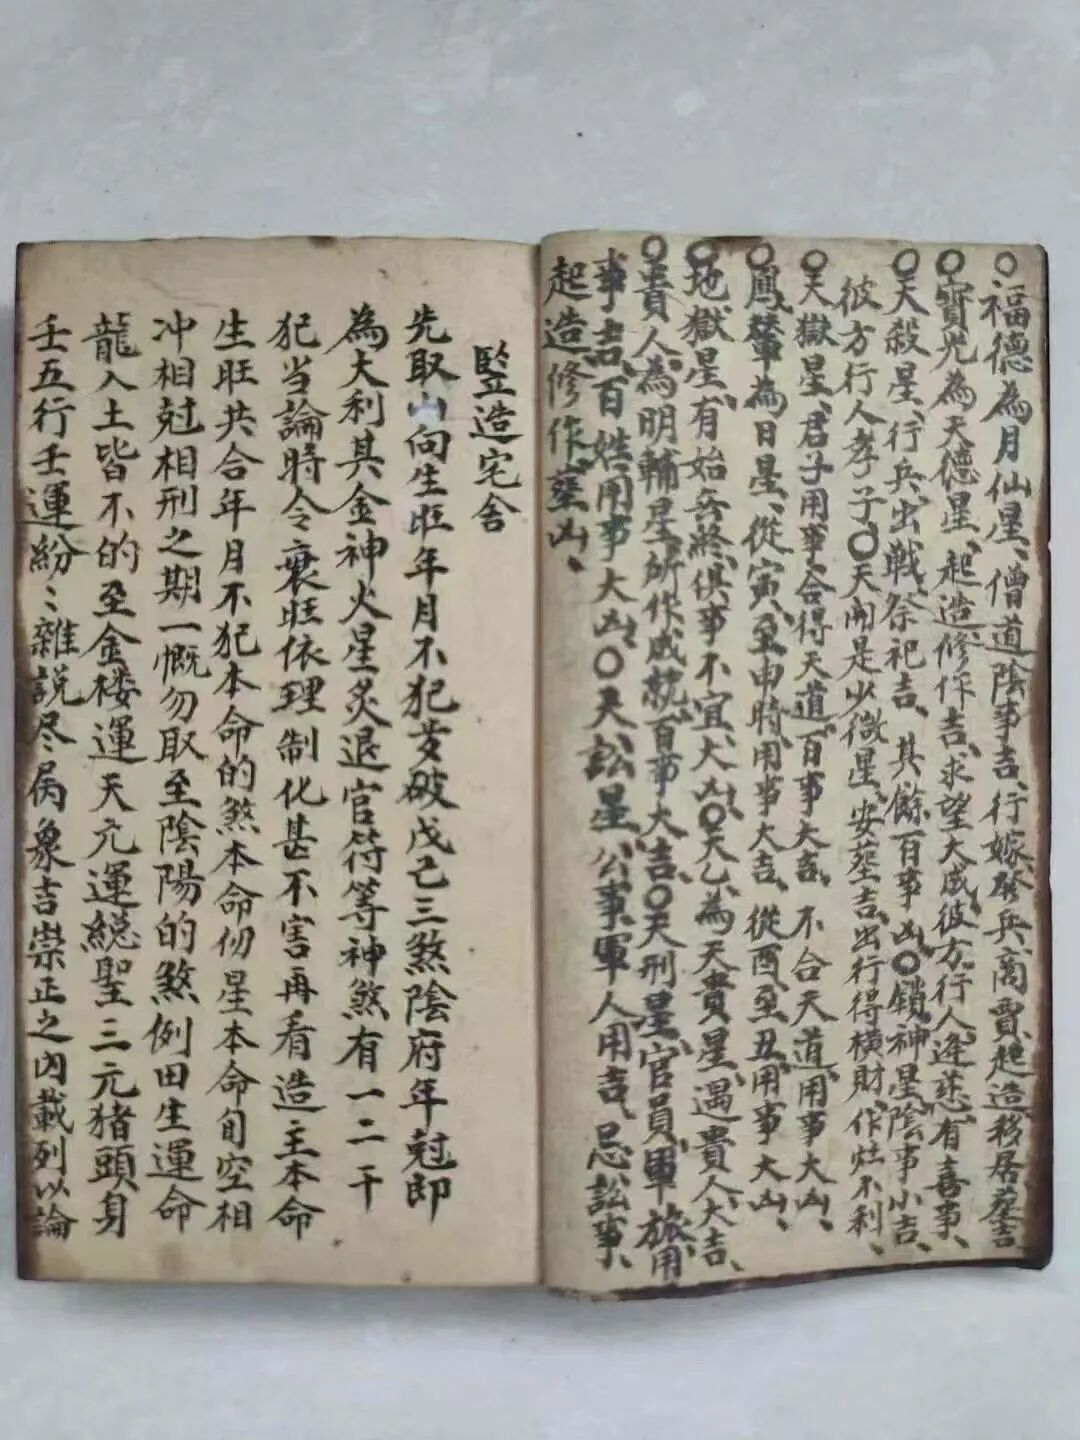 ○福德為月仙星、僧道陰事吉、行嫁、發兵、商賈、起造、移居、塟吉、
○寳光為天德星、起造、修作吉、求望大成、彼方行人逢慈、有喜事、
○天殺星、行兵出戦、祭祀吉、其餘百事凶、○鎖神星、陰事小吉、
彼方行人孝子、○天開是少微星、安塟吉、出行得横財、作灶不利、
○天獄星、君子用事、合得天道、百事大吉、不合天道、用事大凶、
○鳳輦為日星、從寅至申時、用事大吉、從酉至丑、用事大凶、
○地獄星、有始無終、俱事不宜、大凶、○天乙為天貴星、遇貴人、大吉、
○貴人為明輔星、所作成就、百事大吉、○天刑星、官員軍旅用
事吉、百姓用事大凶、○天訟星、公事軍人用吉、忌訟事、
起造、修作、塟凶、
竪造宅舍
先取山向生旺年月不犯歲破戊己三煞陰府年尅即
為大利其金神火星炙退官符等神煞有一二干
犯当論時令衰旺依理制化甚不害再看造主本命
生旺共合年月不犯本命的煞本命仞星本命旬空相
冲相尅相刑之期一慨勿取至陰陽的煞例田生運命
龍入土皆不的至金楼運天元運縂聖三元猪頭身
壬五行壬運紛〻雜説尽属象吉崇正之内載列以論